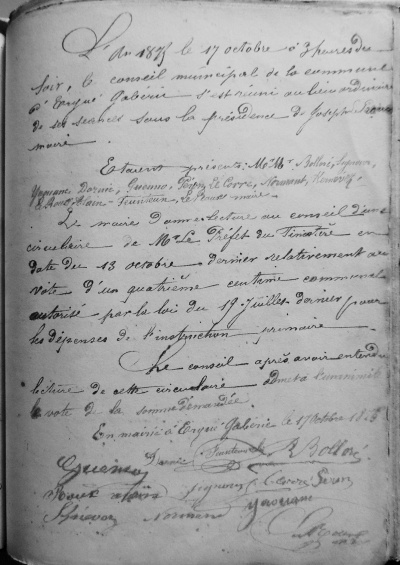 L'An 1875 le 17 octobre à 3 heures du
soir, le conseil municipal de la commune
d'Ergué Gabéric s'est réuni au lieu ordinaire
de ses séances sous la présidence de Joseph Le Roux
maire.
Etaient présents MM. Bolloré,
Yaouanc, Darnié, Guenno, Le Corre, Normant,
Le Roux maire.
Le maire donne lecture au conseil d'une
circulaire de Mr Le Préfet du Finistère en
date du 13 octobre dernier relativement au
vote d'un quatrième centime communal
autorisé par la loi du 19 Juillet dernier pour
les dépenses de l'instruction primaire.
Le conseil après avoir entendu
lecture de cette circulaire admet à l'unanimité
le vote de la somme demandée
En mairie à Ergué Gabéric le 17 octobre 1875
R Bolloré
Guenno
Yaouanc